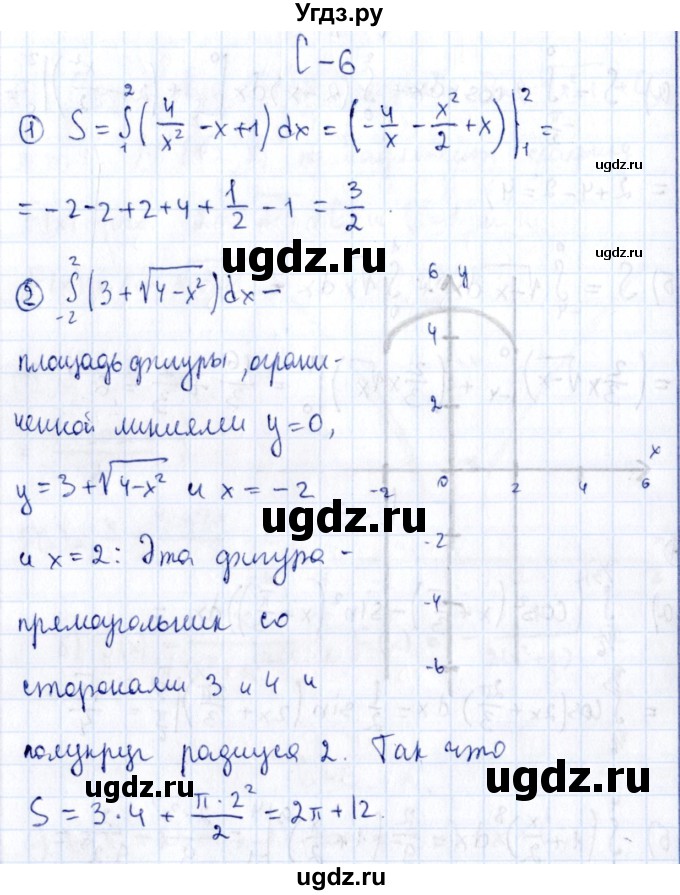 Угдз.ру
С-6
① S = ∫₁² (4/x² - x + 1) dx = (-4/x - x²/2 + x) |₁² =
= -2 - 2 + 2 + 4 + 1/2 - 1 = 3/2.
ugdz.ru
ugdz.ru
② ∫₋₂² (3 + √(4-x²)) dx -
площадь фигуры, ограни-
ченной линиями y = 0,
y = 3 + √(4-x²) и x = -2
ugdz.ru
и x = 2: Эта фигура -
прямоугольник со
сторонами 3 и 4 и
полукруг радиуса 2. Так что
S = 3·4 + π·2²/2 = 2π + 12.
6 y
4
2
x
-2 0 2 4 6
-2
-4
-6
ugdz.ru
ugdz.ru
ugdz.ru
ugdz.ru